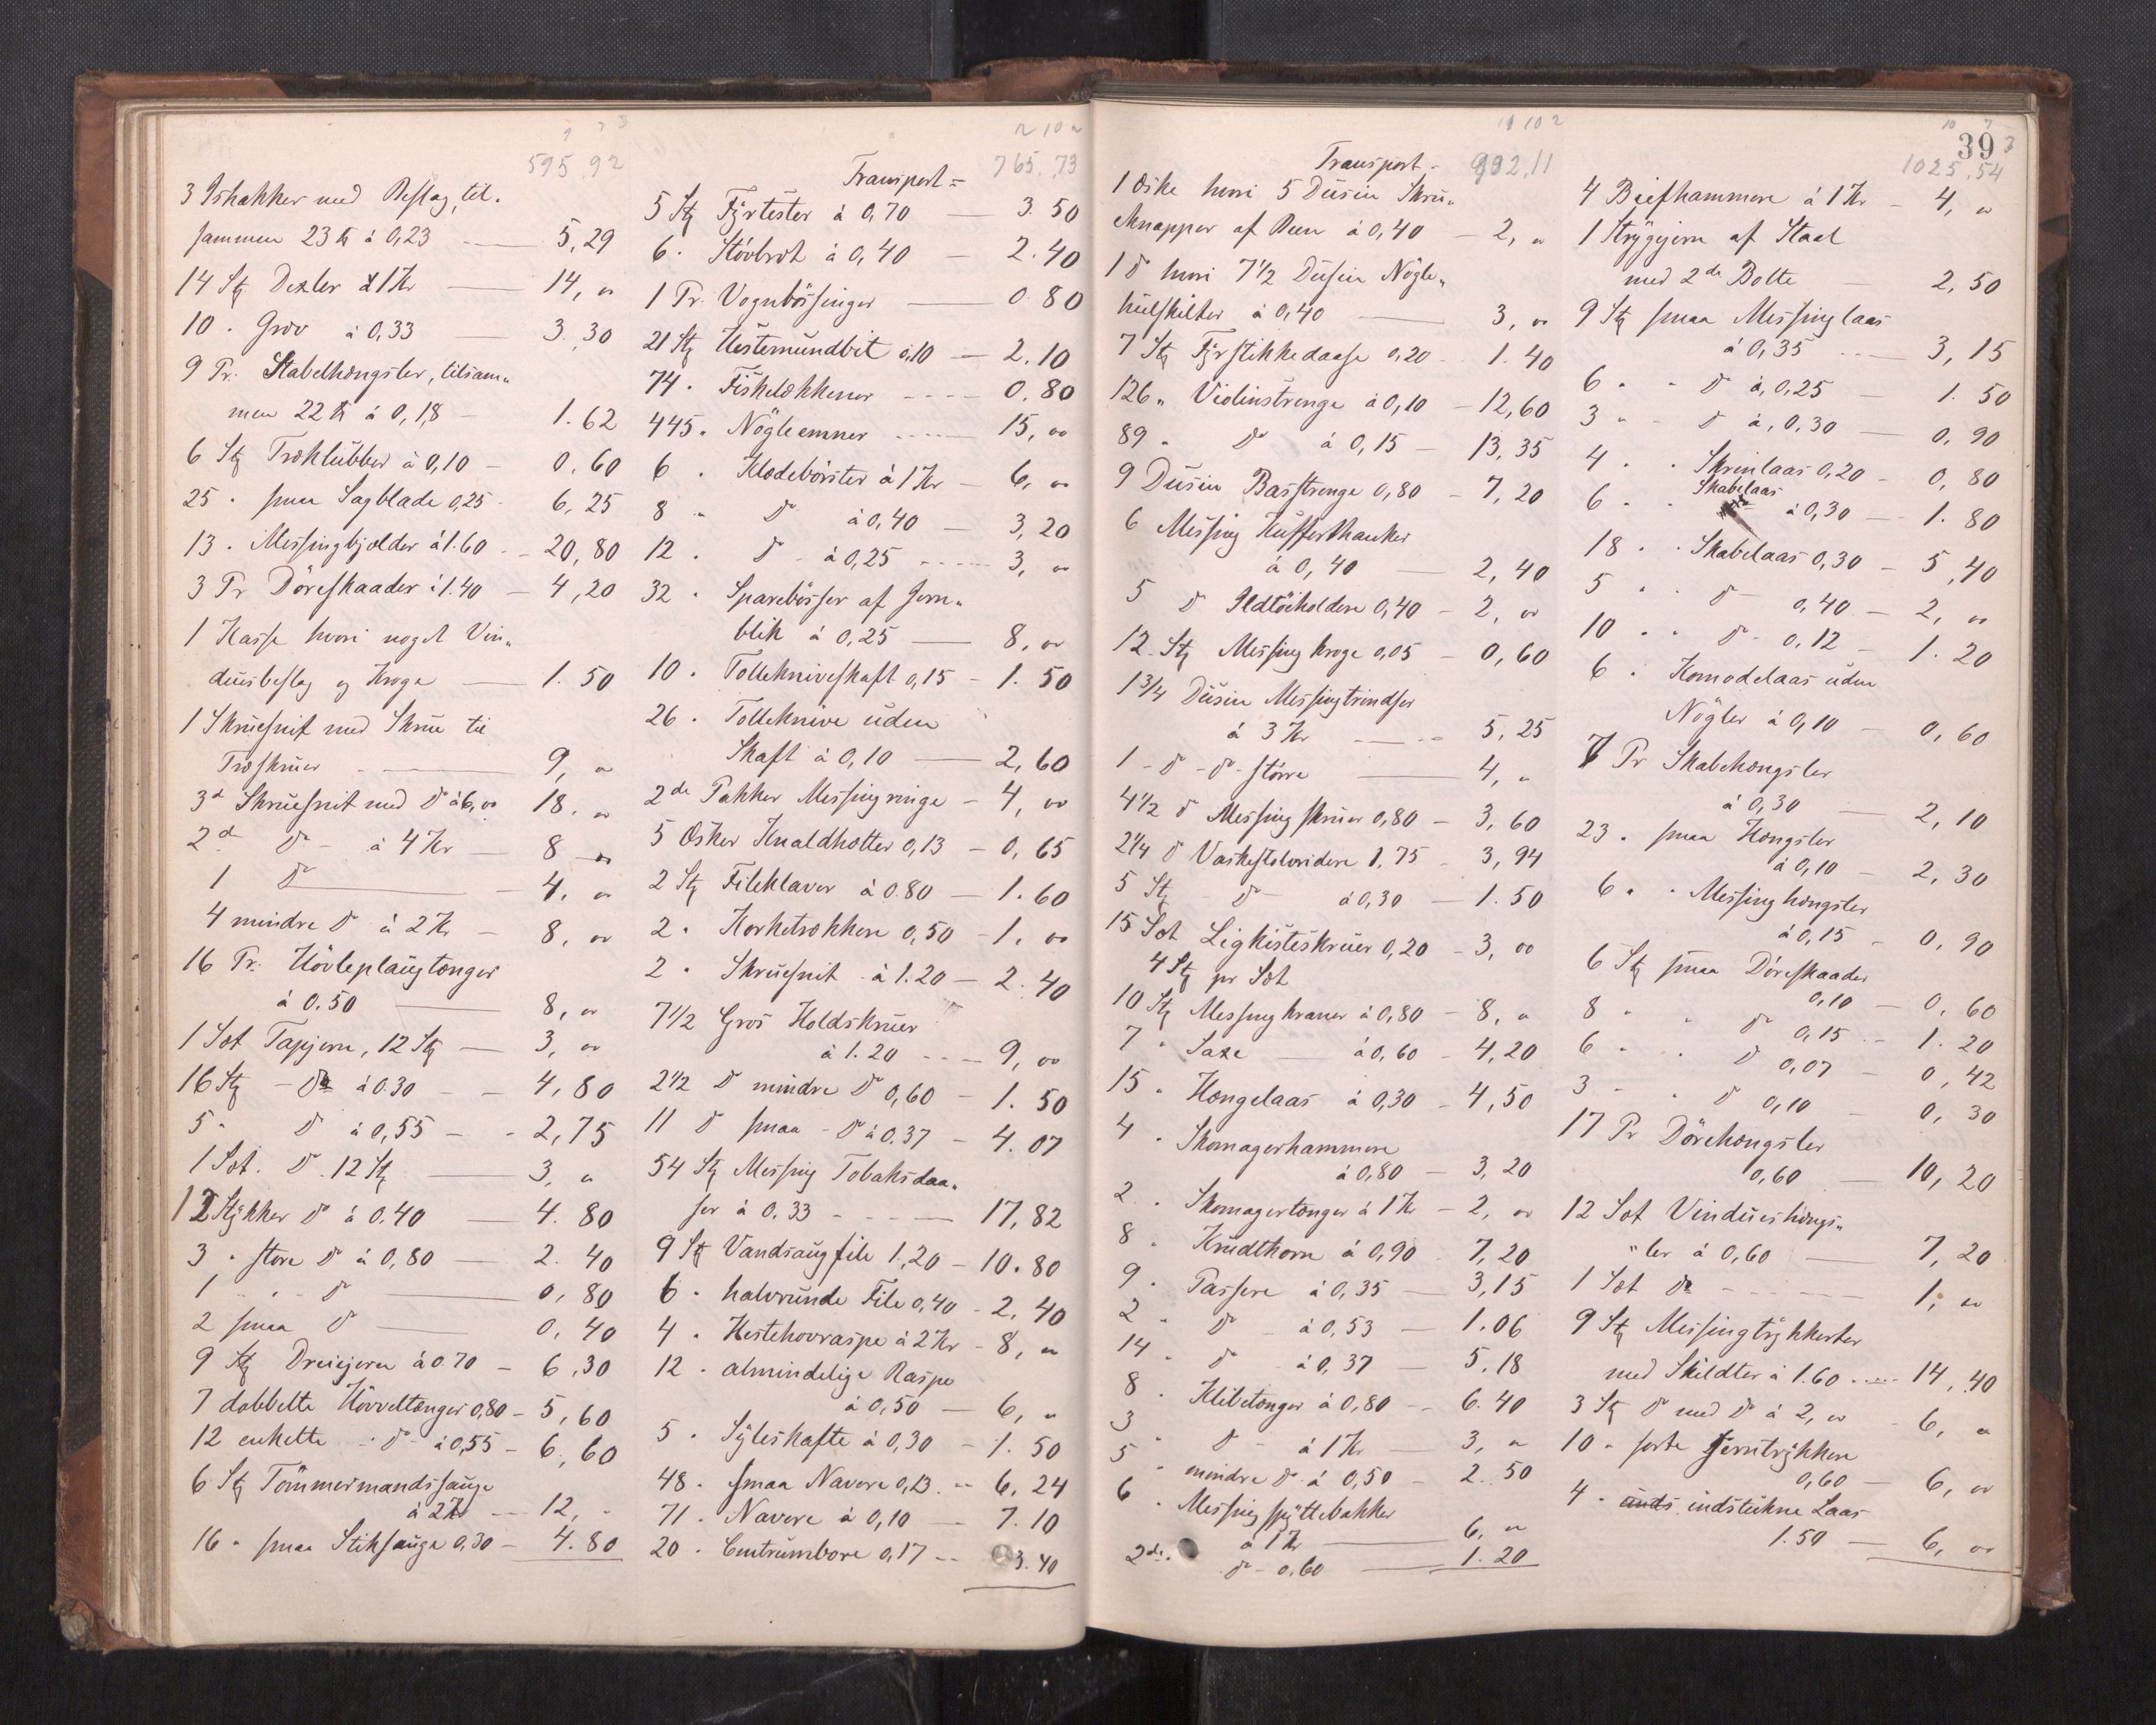 595,92
3 Ishakker med Beslag, til-
sammen 23 ℔ à 0,23 — 5,29
14 Stỹ Dexler à 1 Kr — 14, "
10 " Grev à 0,33 — 3.30
9 Pr. Stabelhængsler, tilsam-
men 22 ℔ à 0,18 — 1.62
6 Stỹ Træklubber à 0,10 — 0,60
25 " smaa Sagblade 0,25 — 6,25
13 " Messingbjelder à 1.60 — 20,80
3 Pr Döreskaader à 1.40 — 4,20
1 Kasse hvori noget Vin-
duesbeslag og Kroge — 1.50
1 Skruesnit med Skrue til
Træskruer — 9, "
3de Skruesnit med Do à 6,oo 18. oo
2de Do - à 4 Kr — 8 oo
1 Do — 4, "
4 mindre Do à 2 Kr — 8, oo
16 Pr. Hövleplougtænger
à 0.50 — 8, oo
1 Sæt Tapjern, 12 Stỹ — 3, oo
16 Stỹ - Do à 0.30 — 4,80
5 " Do à 0,55 — 2,75
1 Sæt. Do. 12 Stỹ — 3, "
12 Stykker Do à 0.40 — 4.80
3 " store Do à 0,80 — 2.40
1 " - Do — 0,80
2 smaa Do — 0,40
9 Stỹ Dreiejern à 0.70 — 6,30
7 dobbelte Hövveltænger 0,80 — 5,60
12 enkelte - Do - à 0,55 — 6,60
6 Stỹ Tömmermandssauge
à 2 Kr — 12, -
16 " smaa Stiksauge 0,30 — 4.80
Transport = 765,73
5 Stỹ Fyrtester à 0,70 — 3.50
6 " Stövbret à 0,40 — 2.40
1 Pr. Vognbössinger — 0.80
21 Stỹ Hestemundbit 0,10 — 2.10
74 " Fiskelokkener — 0.80
445 " Nögleemner — 15, oo
6 " Klædebörster à 1 Kr — 6, oo
8 " Do à 0,40 — 3,20
12 " Do - à 0,25 — 3, oo
32 " Sparebösser af Jern-
blik à 0,25 — 8, oo
10 " Tolleknivskaft 0,15 — 1.50
26 " Tolleknive uden
Skaft à 0,10 — 2,60
2de Pakker Messingringe — 4, oo
5 Æsker Knaldhætter 0,13 — 0,65
2 Stỹ Fileklaver à 0.80 — 1.60
2 " Korketrækkere 0,50 — 1. oo
2 " Skruesnit - à 1.20 — 2.40
7 1/2 Gros Holdskruer
à 1.20 — 9, oo
2 1/2 Do mindre Do 0,60 — 1.50
11 Do smaa - Do à 0.37 — 4.07
54 Stỹ Messing Tobaksdaa-
ser à 0.33 — 17,82
9 Stỹ Vandsaugfile 1,20 — 10.80
6 " halvrunde File 0,40 — 2,40
4 " Hestehovraspe à 2 Kr — 8, "
12 " almindelige Raspe
à 0,50 — 6, "
5 " Syleskafte à 0,30 — 1.50
48 " smaa Navere 0,13 — 6,24
71 " Navere à 0,10 — 7.10
20 " Centrumbore 0,17 — 3.40
39
Transport - 992,11
1 Æske hvori 5 Dusin Skrue-
knapper af Been à 0,40 — 2, "
1 Do hvori 7 1/2 Dusin Nögle-
hulskilter à 0,40 — 3, oo
7 Stỹ Fyrstikkedaase 0,20 — 1.40
126 " Violinstrenge à 0,10 — 12,60
89 " Do à 0,15 — 13,35
9 Dusin Basstrenge 0,80 — 7,20
6 Messing Kufferthanker
à 0,40 — 2,40
5 Do Ildtöiholdere 0,40 — 2, oo
12 Stỹ Messing kroge 0,05 — 0,60
1 3/4 Dusin Messingtrindser
à 3 Kr — 5,25
1 - Do - Do - större — 4, "
4 1/2 Do Messing skruer 0,80 — 3,60
2 1/4 Do Vaskestolvridere 1,75 — 3,94
5 Stỹ - Do - à 0,30 — 1.50
15 Sæt Ligkisteskruer 0,20 — 3, oo
4 Stỹ pr Sæt
10 Stỹ Messingkraner à 0,80 — 8, "
7 " Saxe — à 0,60 — 4,20
15 " Hængelaas à 0,30 — 4,50
4 " Skomagerhammere
à 0,80 — 3,20
2 " Skomagertænger à 1 Kr — 2, oo
8 " Krudthorn à 0,90 7,20
9 " Passere à 0,35 — 3,15
2 " Do à 0,53 — 1.06
14 " Do - à 0,37 — 5.18
8 " Klibetænger à 0,80 — 6.40
3 " Do - à 1 Kr — 3, "
5 " mindre Do - à 0,50 — 2.50
6 " Messing spyttebakker
à 1 Kr — 6, "
2de " Do - 0,60 — 1.20
1025,54
4 Biefhammere à 1 Kr — 4, "
1 Strygejern af Staal
med 2de Bolte — 2,50
9 Stỹ smaa Messinglaas
à 0,35 — 3,15
6 " - Do à, 0,25 — 1.50
3 " - Do à, 0.30 — 0,90
4 " " Skrinlaas 0,20 — 0,80
6 " " Skabelaas à 0,30 — 1.80
18 " " Skabelaas 0,30 — 5,40
5 " " Do 0,40 — 2, oo
10 " " Do - 0,12 — 1.20
6 " Komodelaas uden
Nögler à 0,10 — 0,60
7 Pr Skabehængsler
à 0,30 — 2,10
23 " smaa Hængsler
à 0,10 — 2,30
6 " " Messinghængsler
à 0,15 — 0,90
6 Stỹ smaa Döreskaader
0,10 — 0,60
8 " " Do 0,15 — 1.20
6 " " Do 0,07 — 0,42
3 " " Do 0,10 — 0,30
17 Pr Dörehængsler
0,60 — 10,20
12 Sæt Vindueshængs-
"ler à 0,60 — 7,20
1 Sæt Do — 1, oo
9 Stỹ Messingtrykkerter
med Skildter à 1.60 — 14,40
3 Stỹ Do med Do à 2, oo — 6, "
10 " sorte Jerntrykkere
0,60 — 6, oo
4 " inds indstukne Laas
1.50 — 6, oo